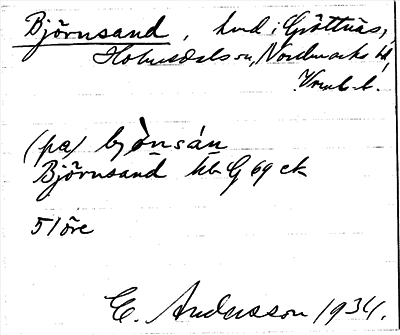 Björnsand, hmd i Gröttnäs,
Holmedals sn, Nordmarks hd,
Vrml. l.
(pa) bjònsán
Björnsand hb G 69 ek
5/ öre
E. Andersson 1934.